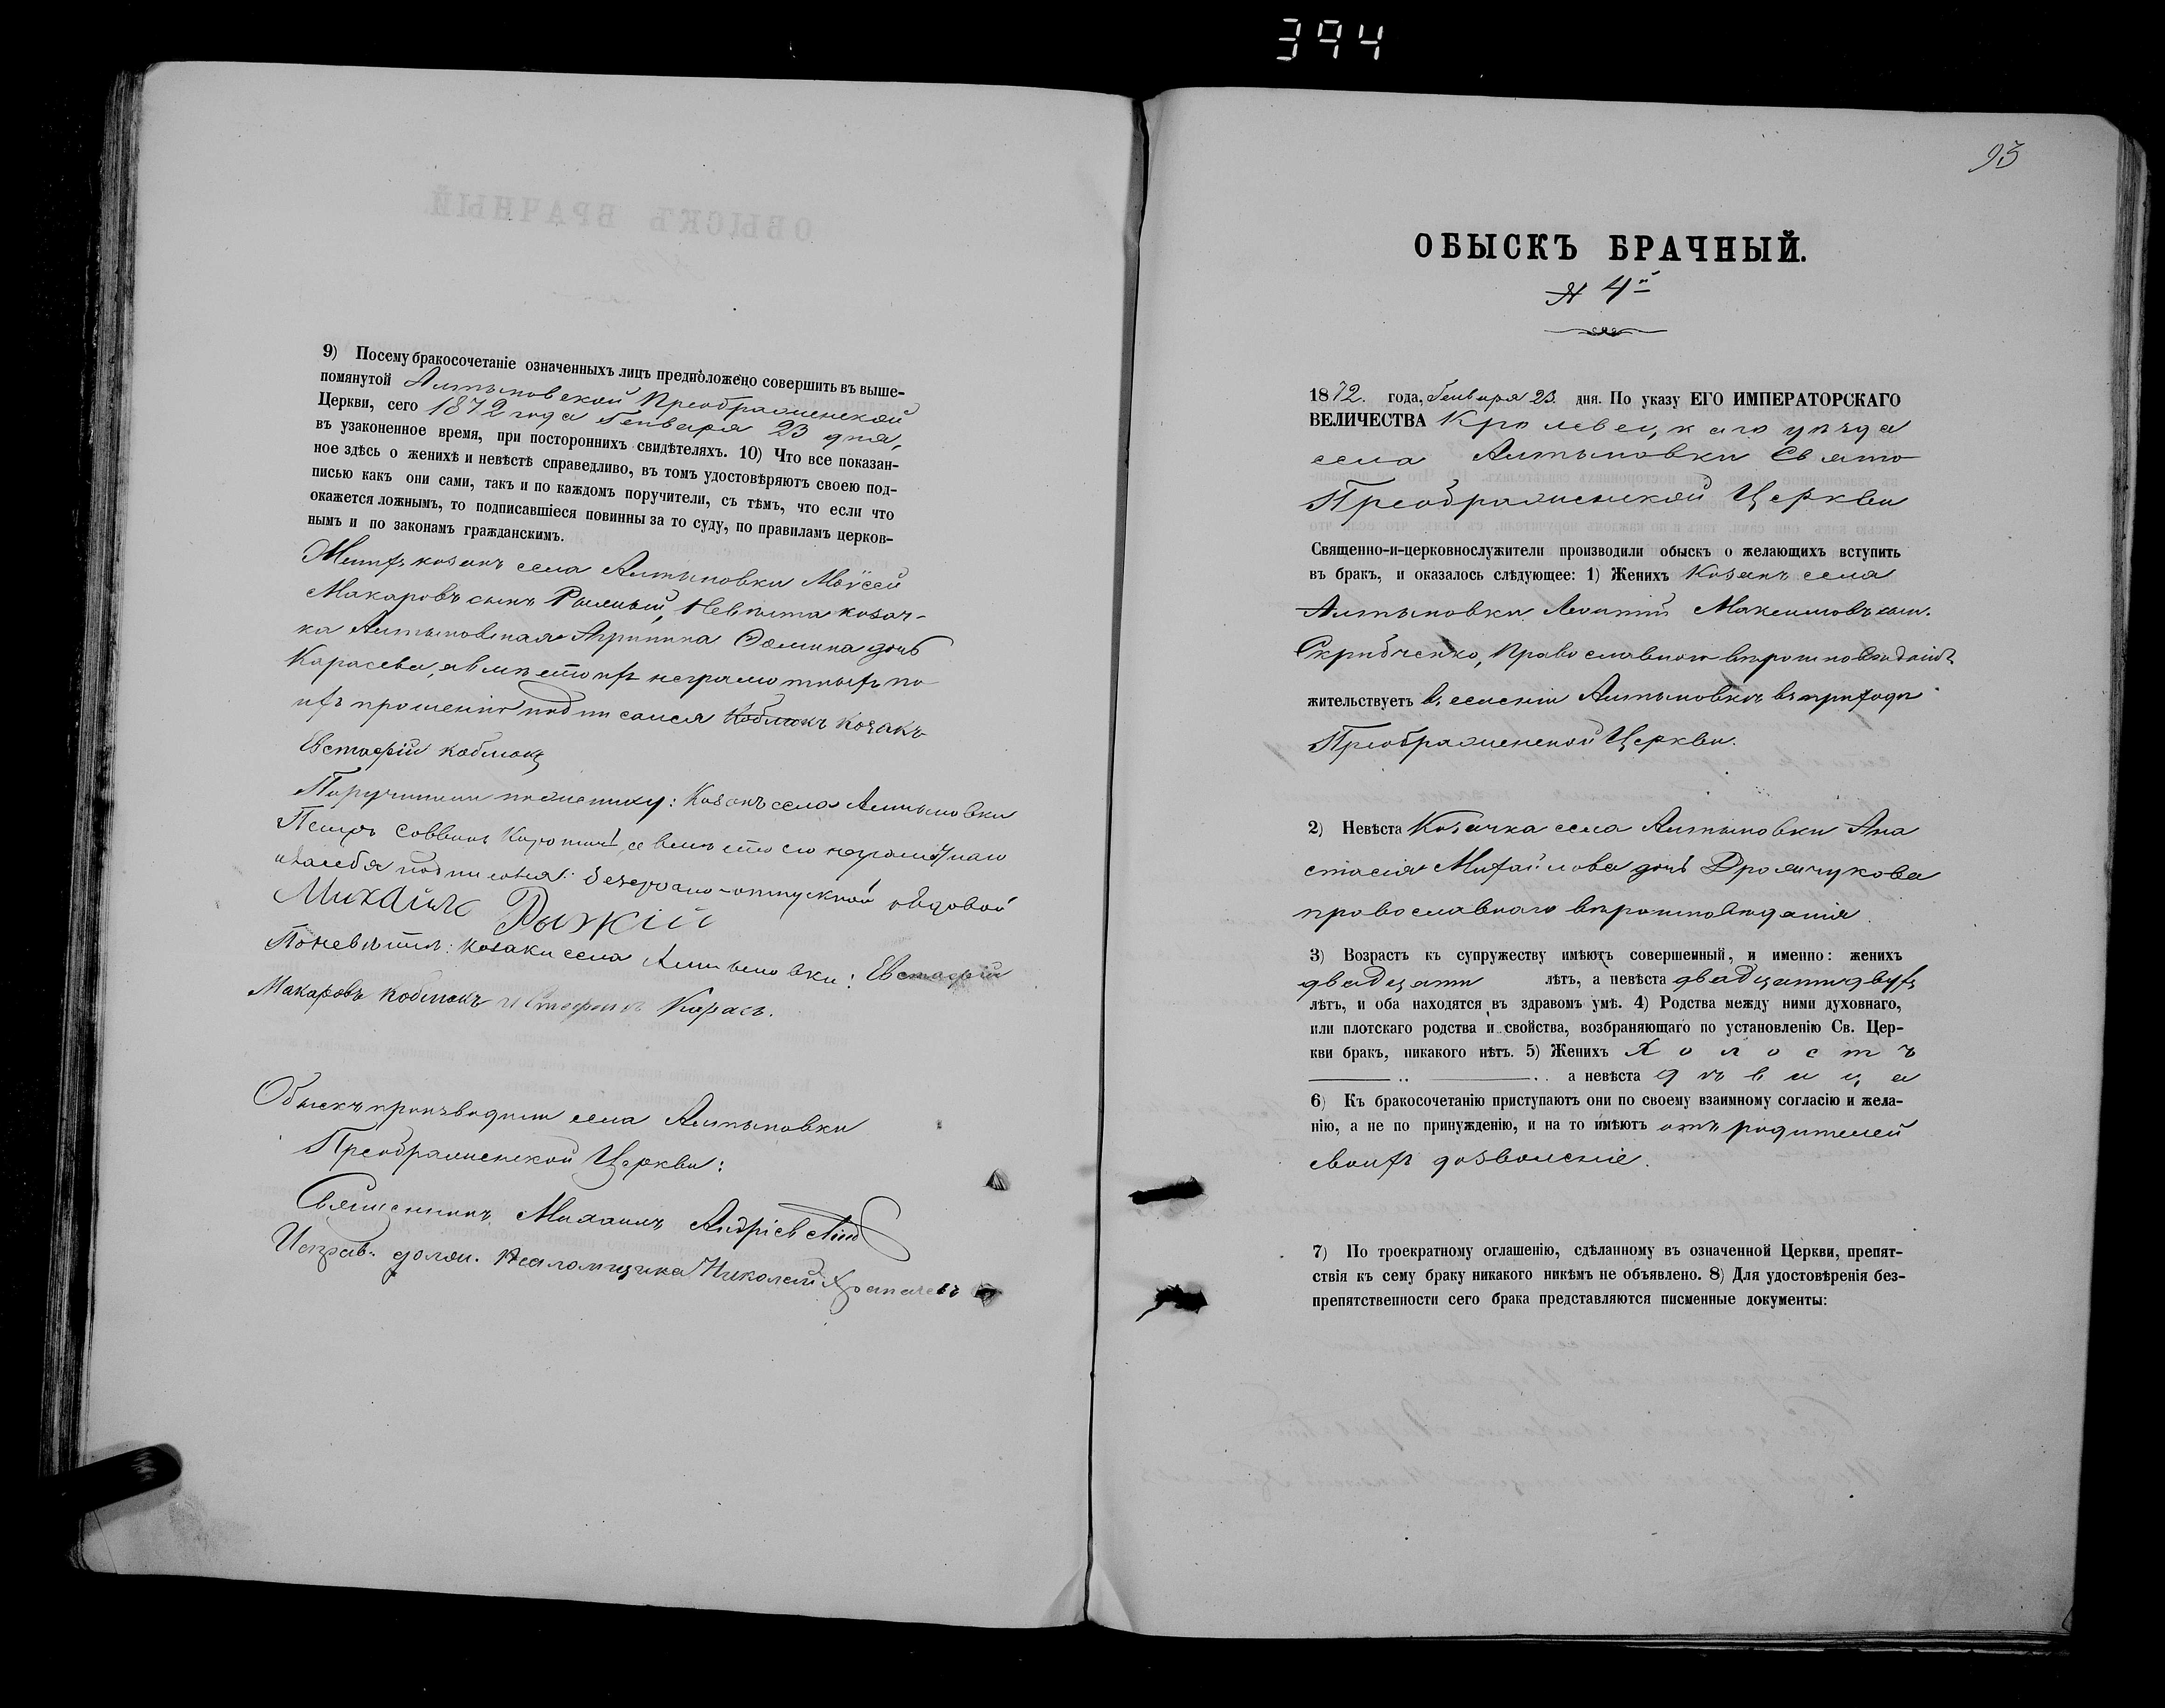 394
9) Посему бракосочетаніе означенныхъ лицъ предположено совершить въ выше-
помянутой Алтыновской Преображенской
Церкви, сего 1872 года Генваря 23 дня,
въ узаконенное время, при постороннихъ свидѣтеляхъ. 10) Что все показан-
ное здѣсь о женихѣ и невѣстѣ справедливо, въ томъ удостовѣряютъ своею под-
писью какъ они сами, такъ и по каждомъ поручители, съ тѣмъ, что если что
окажется ложнымъ, то подписавшіеся повинны за то суду, по правиламъ церков-
нымъ и по законамъ гражданскимъ.
козакъ села Алтыновки Моѵсей
Макаровъ сынъ Рыжый, Невѣста козач-
ка Алтыновская Агрипина Ѳомина дочь
Карасева, а вмѣсто ихъ неграмотныхъ по
ихъ прошенію подписался Коблокъ козакъ
Евстафій Коблокъ
Поручители по женику: Козакъ села Алтыновки
Петръ Саввинъ а вместо его неграмотнаго
и засебя подписался: безсрочно-отпускной рядовой
Михаилъ Рыжій
По невѣсте: козаки села Алтыновки: Евстафій
Макаровъ Коблокъ и Стефанъ Карась.
Обыскъ производили села Алтыновки
Преображенской Церкви:
Священникъ Михаилъ
Исправ. долж. Псаломщика Николай
93
ОБЫСКЪ БРАЧНЫЙ.
№ 4й
1872. года, Генваря 23. дня. По указу ЕГО ИМПЕРАТОРСКАГО
ВЕЛИЧЕСТВА Кролевецкаго уѣзда
села Алтыновки Свято
Преображенской Церкви
Священно-и-церковнослужители производили обыскъ о желающихъ вступить
въ бракъ, и оказалось слѣдующее: 1) Женихъ Козакъ села
Алтыновки Леонтій Максимовъ сын.
Скрибченко, Православнаго вѣроисповѣданія
жительствуетъ в, селеніи Алтыновкѣ въ приходѣ
Преображенской Церкви.
2) Невѣста Козачка села Алтыновки Ана
стасія Михайлова дочь Дромчукова
православнаго вѣроисповѣданія.
3) Возрастъ къ супружеству имѣютъ совершенный, и именно: женихъ
двадцати лѣтъ, а невѣста двадцатидвухъ
лѣтъ, и оба находятся въ здравомъ умѣ. 4) Родства между ними духовнаго,
или плотскаго родства и свойства, возбраняющаго по установленію Св. Цер-
кви бракъ, никакого нѣтъ. 5) Женихъ Холостъ
а невѣста дѣвица
6) Къ бракосочетанію приступаютъ они по своему взаимному согласію и жела-
нію, а не по принужденію, и на то имѣютъ отъ родителей
своихъ дозволеніе.
7) По троекратному оглашенію, сдѣланному въ означенной Церкви, препят-
ствія къ сему браку никакого никѣмъ не объявлено. 8) Для удостовѣренія без-
препятственности сего брака представляются писменные документы: